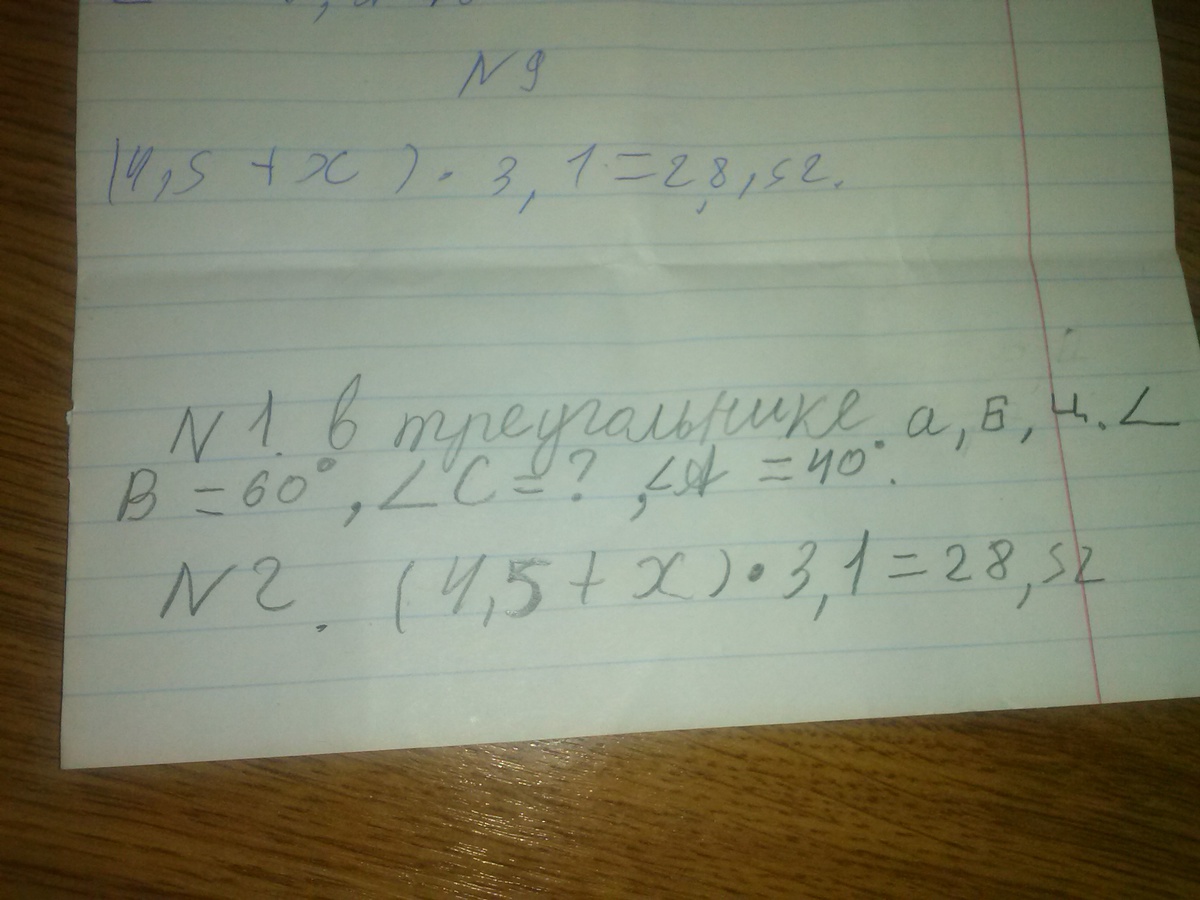 N 9
(4,5 + x) · 3,1 = 28,52.
N 1. в треугольнике. а, Б, ц. ∠
B = 60°, ∠C = ?, ∠A = 40°.
N 2. (4,5 + x) · 3,1 = 28,52